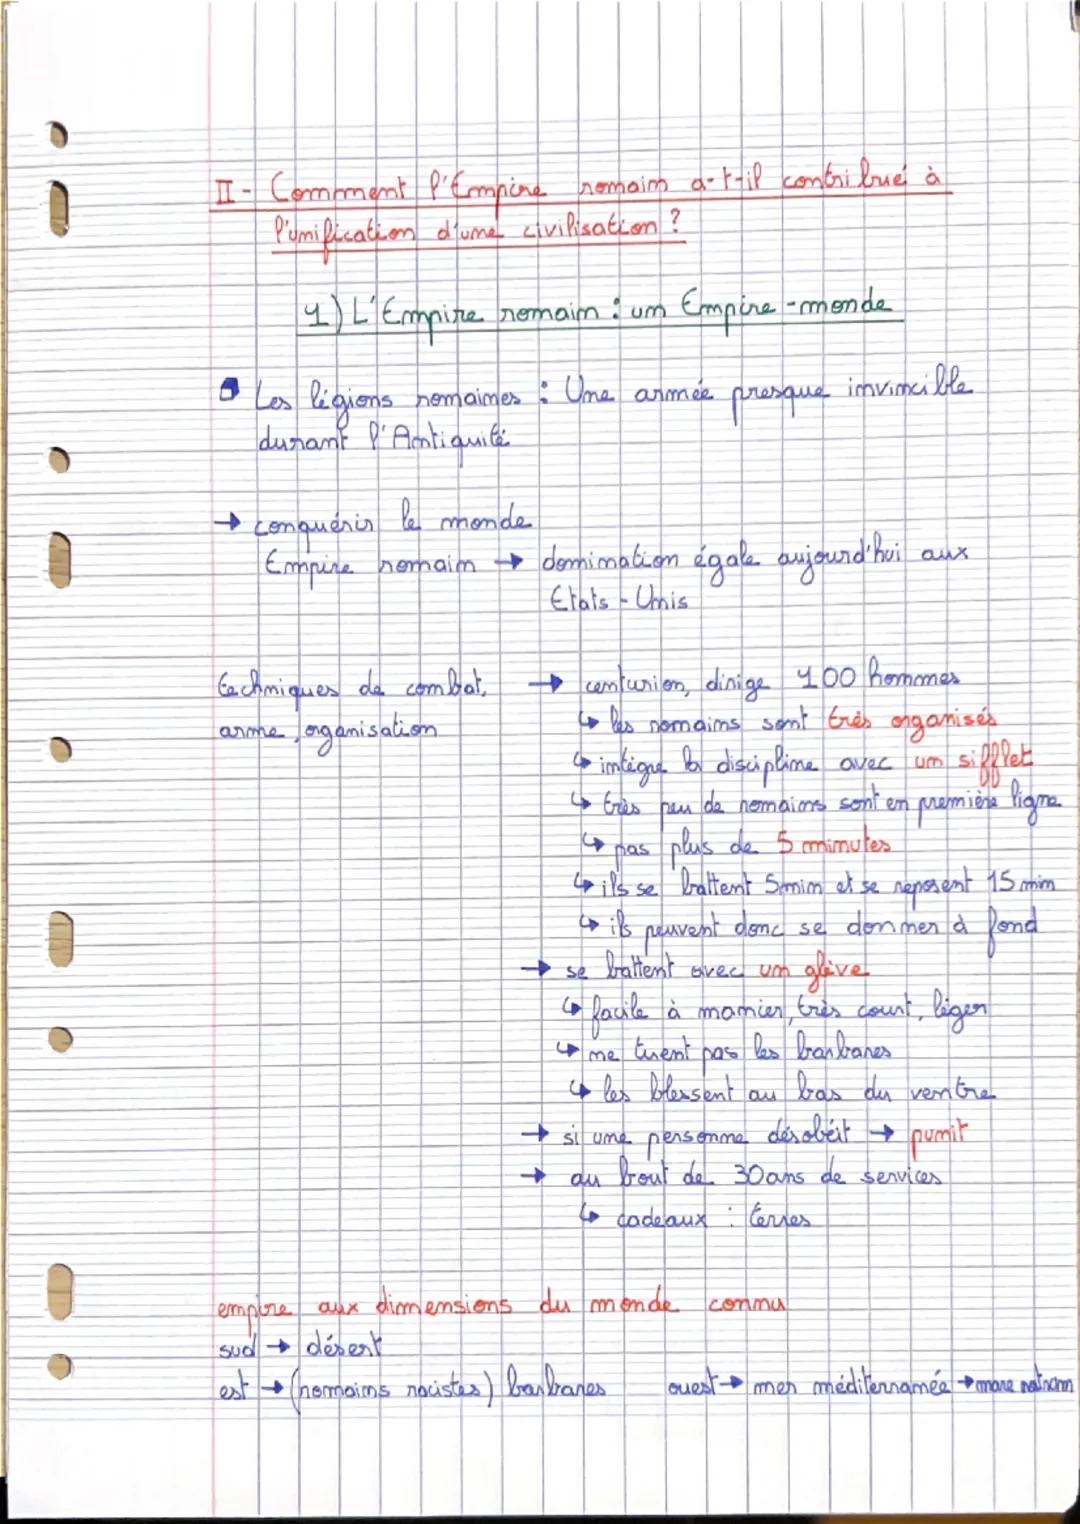 II - Comment l'Empire romain a-t-il contribué à
l'unification d'une civilisation ?
1) L'Empire romain : un Empire-monde
Les légions romaines : Une armée presque invincible
durant l'Antiquité
→ conquérir le monde
Empire romain → domination égale aujourd'hui aux
Etats-Unis
techniques de combat, → centurion, dirige 100 hommes
arme, organisation ↳ les romains sont très organisés
↳ intègre la discipline avec un sifflet
↳ très peu de romains sont en première ligne
↳ pas plus de 5 minutes
↳ ils se battent 5min et se reposent 15 min
↳ ils peuvent donc se donner à fond
→ se battent avec un glaive
↳ facile à manier, très court, léger
↳ ne tuent pas les barbares
↳ les blessent au bas du ventre
→ si une personne désobéit → punit
→ au bout de 30ans de services
↳ cadeaux : terres
empire aux dimensions du monde connu
sud → désert
est → (romains racistes) barbares ouest → mer méditerranée → mare